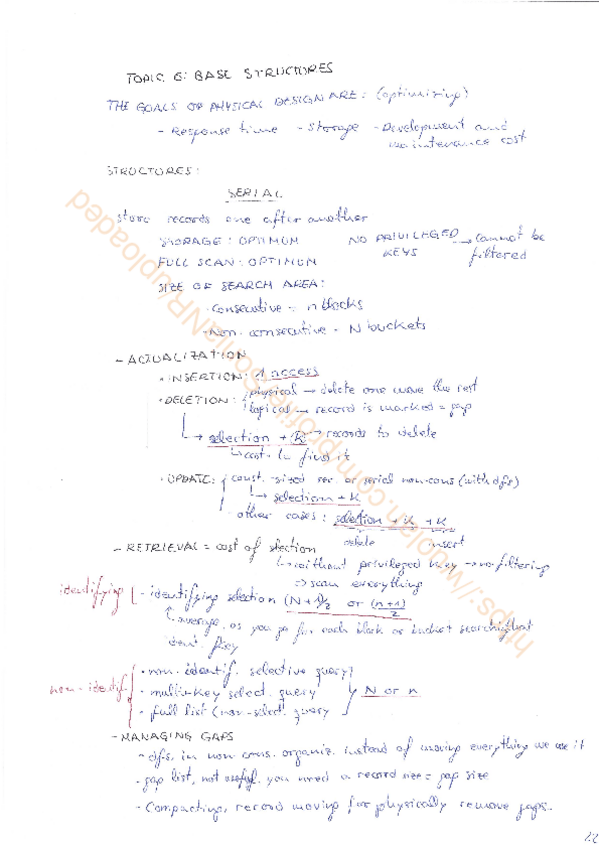 TOPIC 6: BASE STRUCTURES
THE GOALS OF PHYSICAL DESIGN ARE: (optimizing)
- Response time - Storage - Development and
maintenance cost
STRUCTURES:
SERIAL
store records one after another
STORAGE: OPTIMUM NO PRIVILAGED → cannot be
FULL SCAN: OPTIMUM KEYS filtered
SIZE OF SEARCH AREA:
· Consecutive - n blocks
· Non-consecutive - N buckets
- ACTUALIZATION
· INSERTION: 1 access
· DELETION: physical → delete one move the rest
logical → record is marked = gap
→ selection + K → records to delete
cost to find it
· UPDATE: const-sized rec. or serial non-cons (with dfs)
→ selection + K
other cases: selection + K + K
delete insert
- RETRIEVAL = cost of selection
→ without privileged key → no filtering
⇒ scan everything
identifying · identifying selection (N+1)/2 or (n+1)/2
average, as you go for each block or bucket searching that
ident. key
· non-identif. selective query
non-identif · multi-key select. query N or n
· full list (non-select. query
- MANAGING GAPS
· dfs, in non cons. organiz. instead of moving everything we use it
· gap list, not useful. you need a record size = gap size
· Compacting, record moving for physically remove gaps.
https://wuolah.com/profile/SoniaNR/uploaded